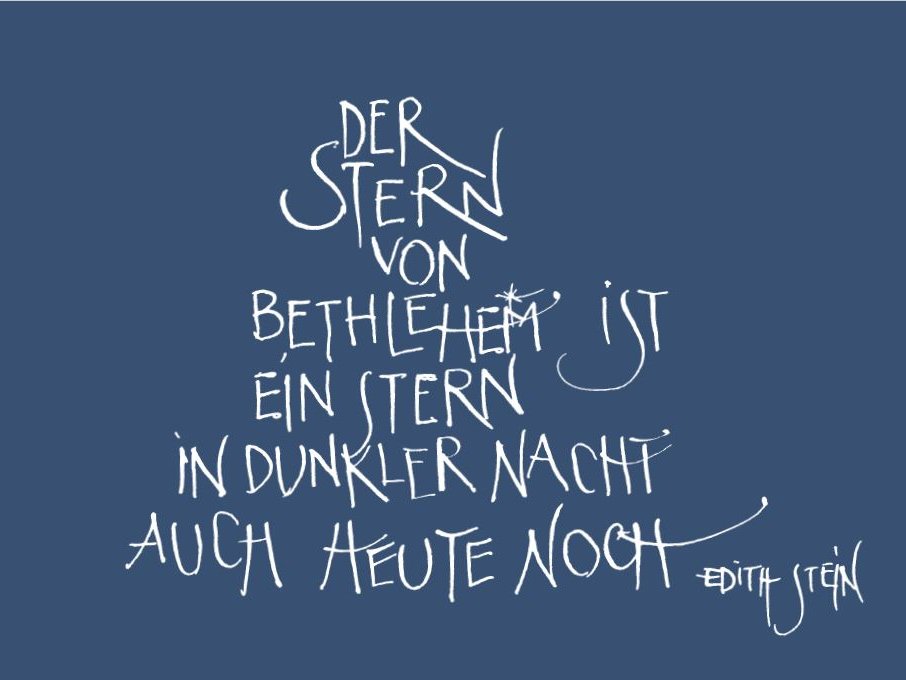 DER
STERN
VON
BETHLEHEM IST
EIN STERN
IN DUNKLER NACHT
AUCH HEUTE NOCH
EDITH STEIN